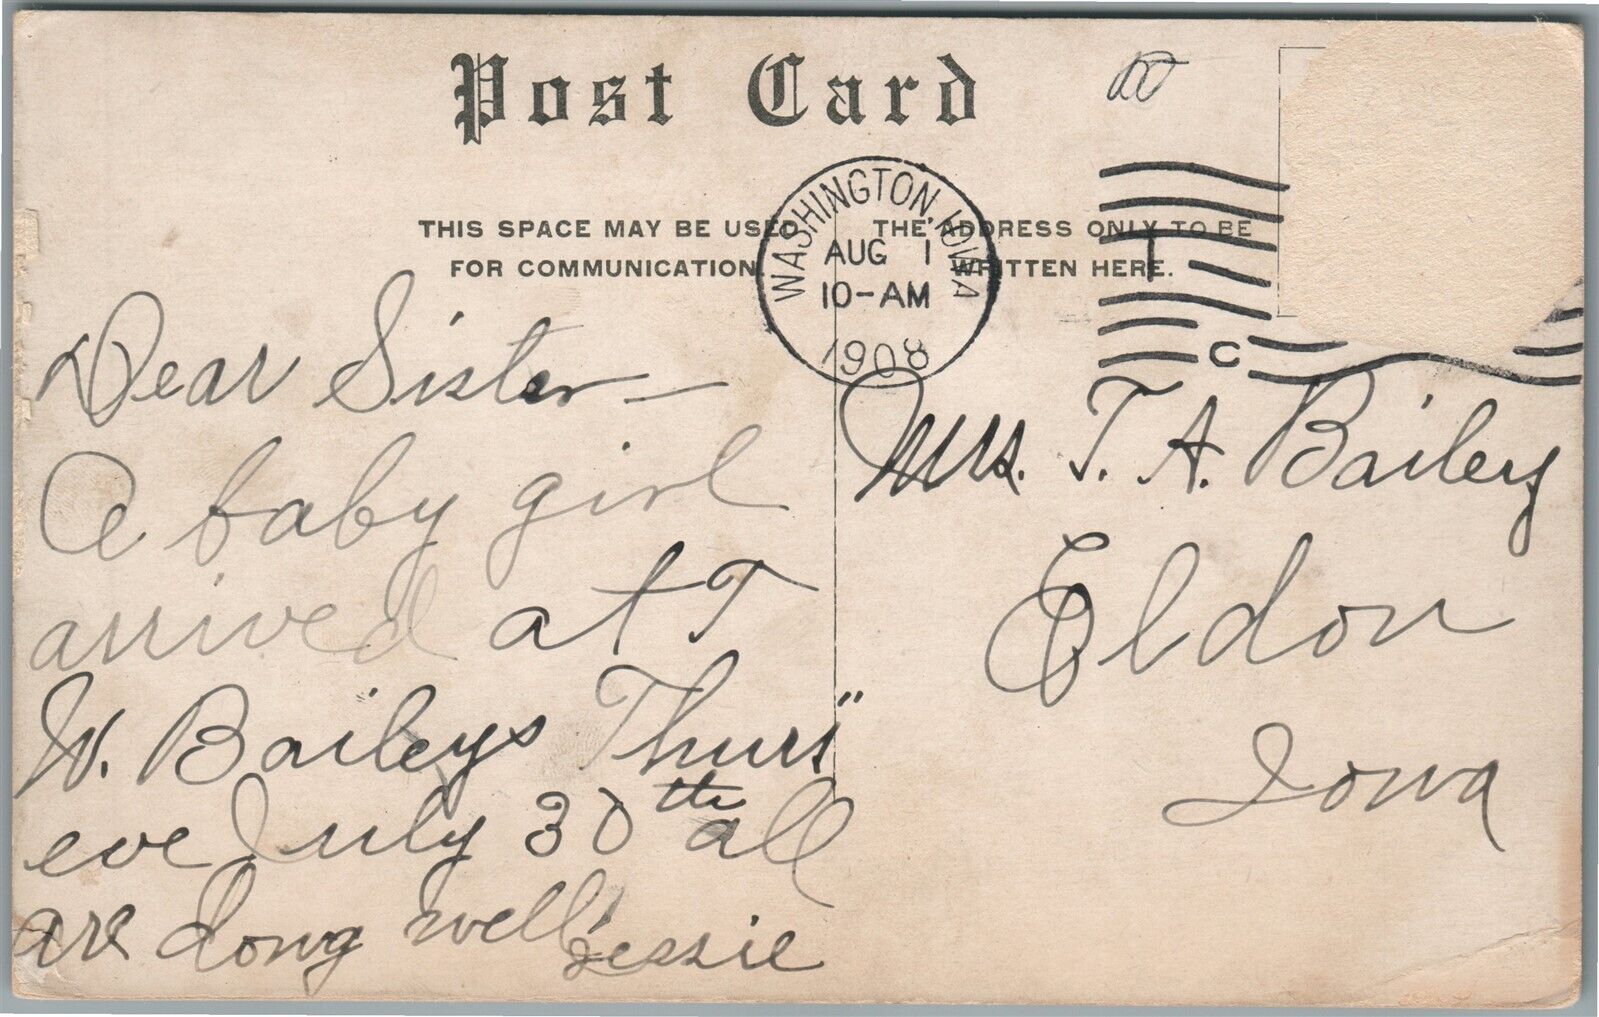 Post Card
THIS SPACE MAY BE USED
FOR COMMUNICATION.
THE ADDRESS ONLY TO BE
WRITTEN HERE.
WASHINGTON, IOWA
AUG 1
10-AM
1908
T
C
Dear Sister —
A baby girl
arrived at T
W. Baileys Thurs"
eve July 30th all
are doing well
Jessie
Mrs. T. A. Bailey
Eldon
Iowa